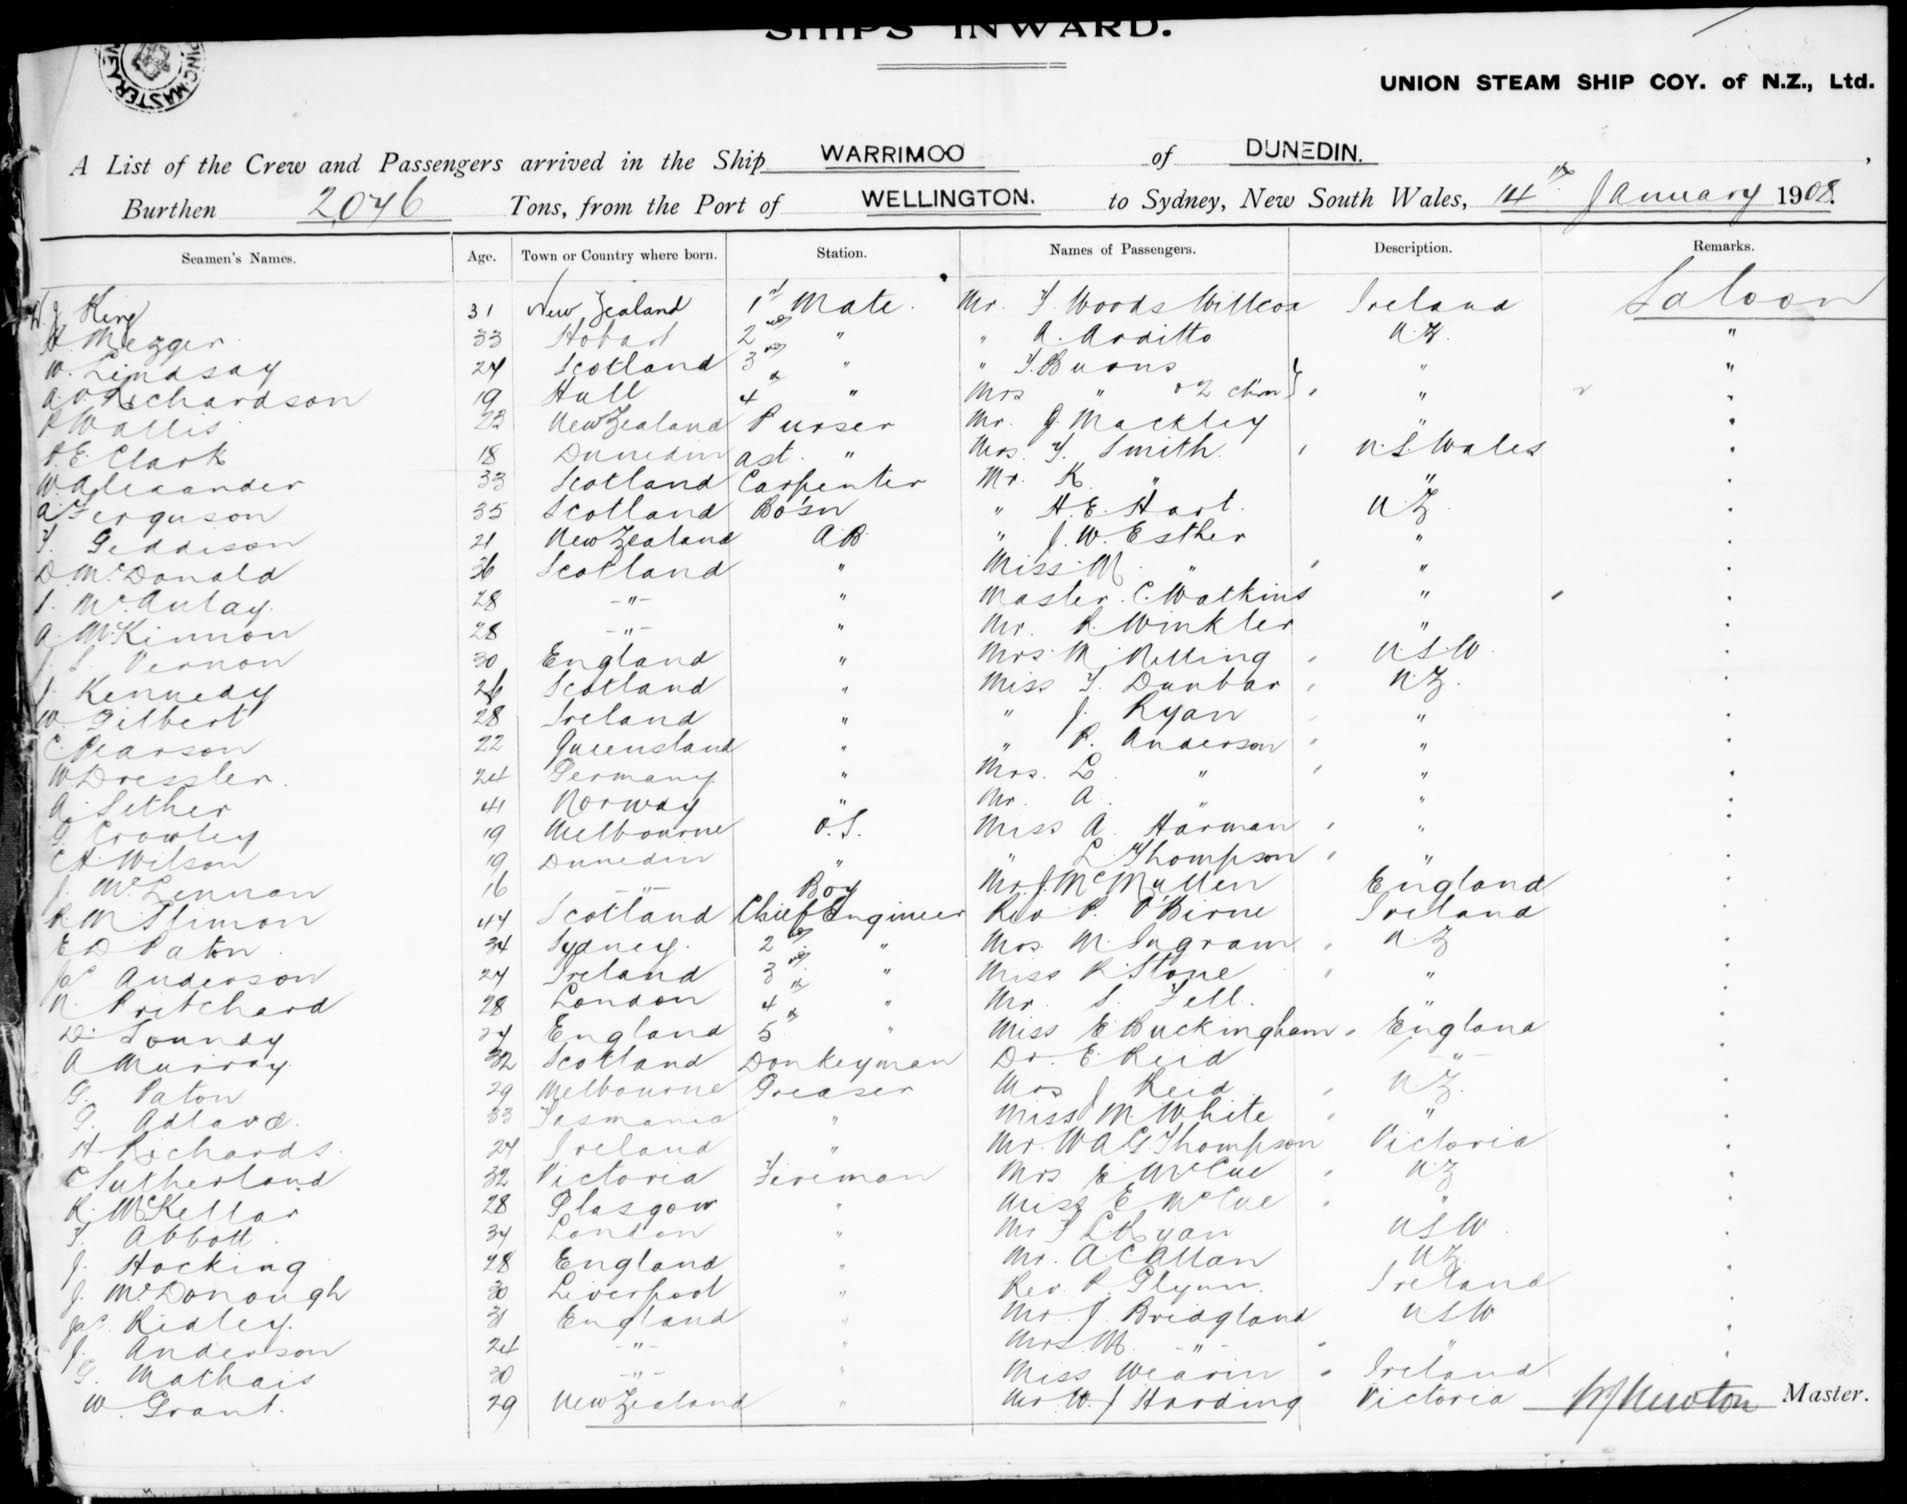 SHIPS INWARD.
UNION STEAM SHIP COY. of N.Z., Ltd.
A List of the Crew and Passengers arrived in the Ship WARRIMOO of DUNEDIN.,
Burthen 2076 Tons, from the Port of WELLINGTON. to Sydney, New South Wales, 14th January 1908.
Seamen's Names. Age. Town or Country where born. Station. Names of Passengers. Description. Remarks.
King 31 New Zealand 1st Mate. Mr. F. Woods Willcox Ireland Saloon
H Mezger 33 Hobart 2nd " " A. Arditto N.Z. "
W. Lindsay 24 Scotland 3rd " " " "
Richardson 19 Hull 4th " Mrs " & 2 chn " "
P Wallis 23 New Zealand Purser Mr. J. Mackley "
P.E. Clark 18 Dunedin ast. " Mrs. F. Smith. N.S. Wales
W. Alexander 33 Scotland Carpenter Mr. K. " "
A Ferguson 35 Scotland Bo'sn " H.E. Hart. N.Z.
F. Geddison 21 New Zealand A.B. " J. W. Esther "
D. McDonald 36 Scotland " Miss M. " "
McAulay. 28 -"- " Master. C. Watkins "
A. McKinnon 28 -"- " Mr. R. Winkler "
Vernon 30 England " Mrs M. N.S.W.
J. Kennedy 26 Scotland " Miss F. Dunbar N.Z.
W. Gilbert 28 Ireland " " J. Ryan "
C. Pearson 22 Queensland " " R. Anderson "
W Dressler. 24 Germany. " Mrs. L. " "
A. Sether 41 Norway " Mr. A. " "
G. Crowley 19 Melbourne O.S. Miss A. Harman "
C H. Wilson 19 Dunedin " " L. Thompson "
J. McLennan 16 -"- Boy Mr. J. McMullen England
R M Slimon 44 Scotland Chief Engineer Rev P. O'Birne Ireland
E D Paton 34 Sydney. 2nd " Mrs. M. Ingram N.Z
Jas Anderson 24 Ireland 3rd " Miss R. Stone "
N. Pritchard 28 London 4th " Mr. S. Fell. "
D. Soundy 24 England 5th " Miss E Buckingham England
A Murray. 32 Scotland Donkeyman Dr. E. Reid -"-
G. Paton 29 Melbourne Greaser Mrs J. Reid N.Z.
G. Adlard. 33 Tasmania " Miss M. White "
H Richards. 24 Ireland " Mr. W A G. Thompson Victoria
C Sutherland 32 Victoria Fireman Mrs E McCue N.Z
R. McKellar 28 Glasgow " Miss E McCue "
F. Abbott. 34 London " Mr F L Ryan N S W.
J. Hocking 28 England " Mr. A C Allan N.Z.
J. McDonough 30 Liverpool " Rev. P. Glynn. Ireland
Jas. Ridley. 31 England " Mr J Bridgland N S W
J. Anderson 24 -"- " Mrs. M. -"- "
G. Mathais 30 -"- " Miss Wearin Ireland
W. Grant. 29 New Zealand " Mr. W. J Harding Victoria Newton Master.